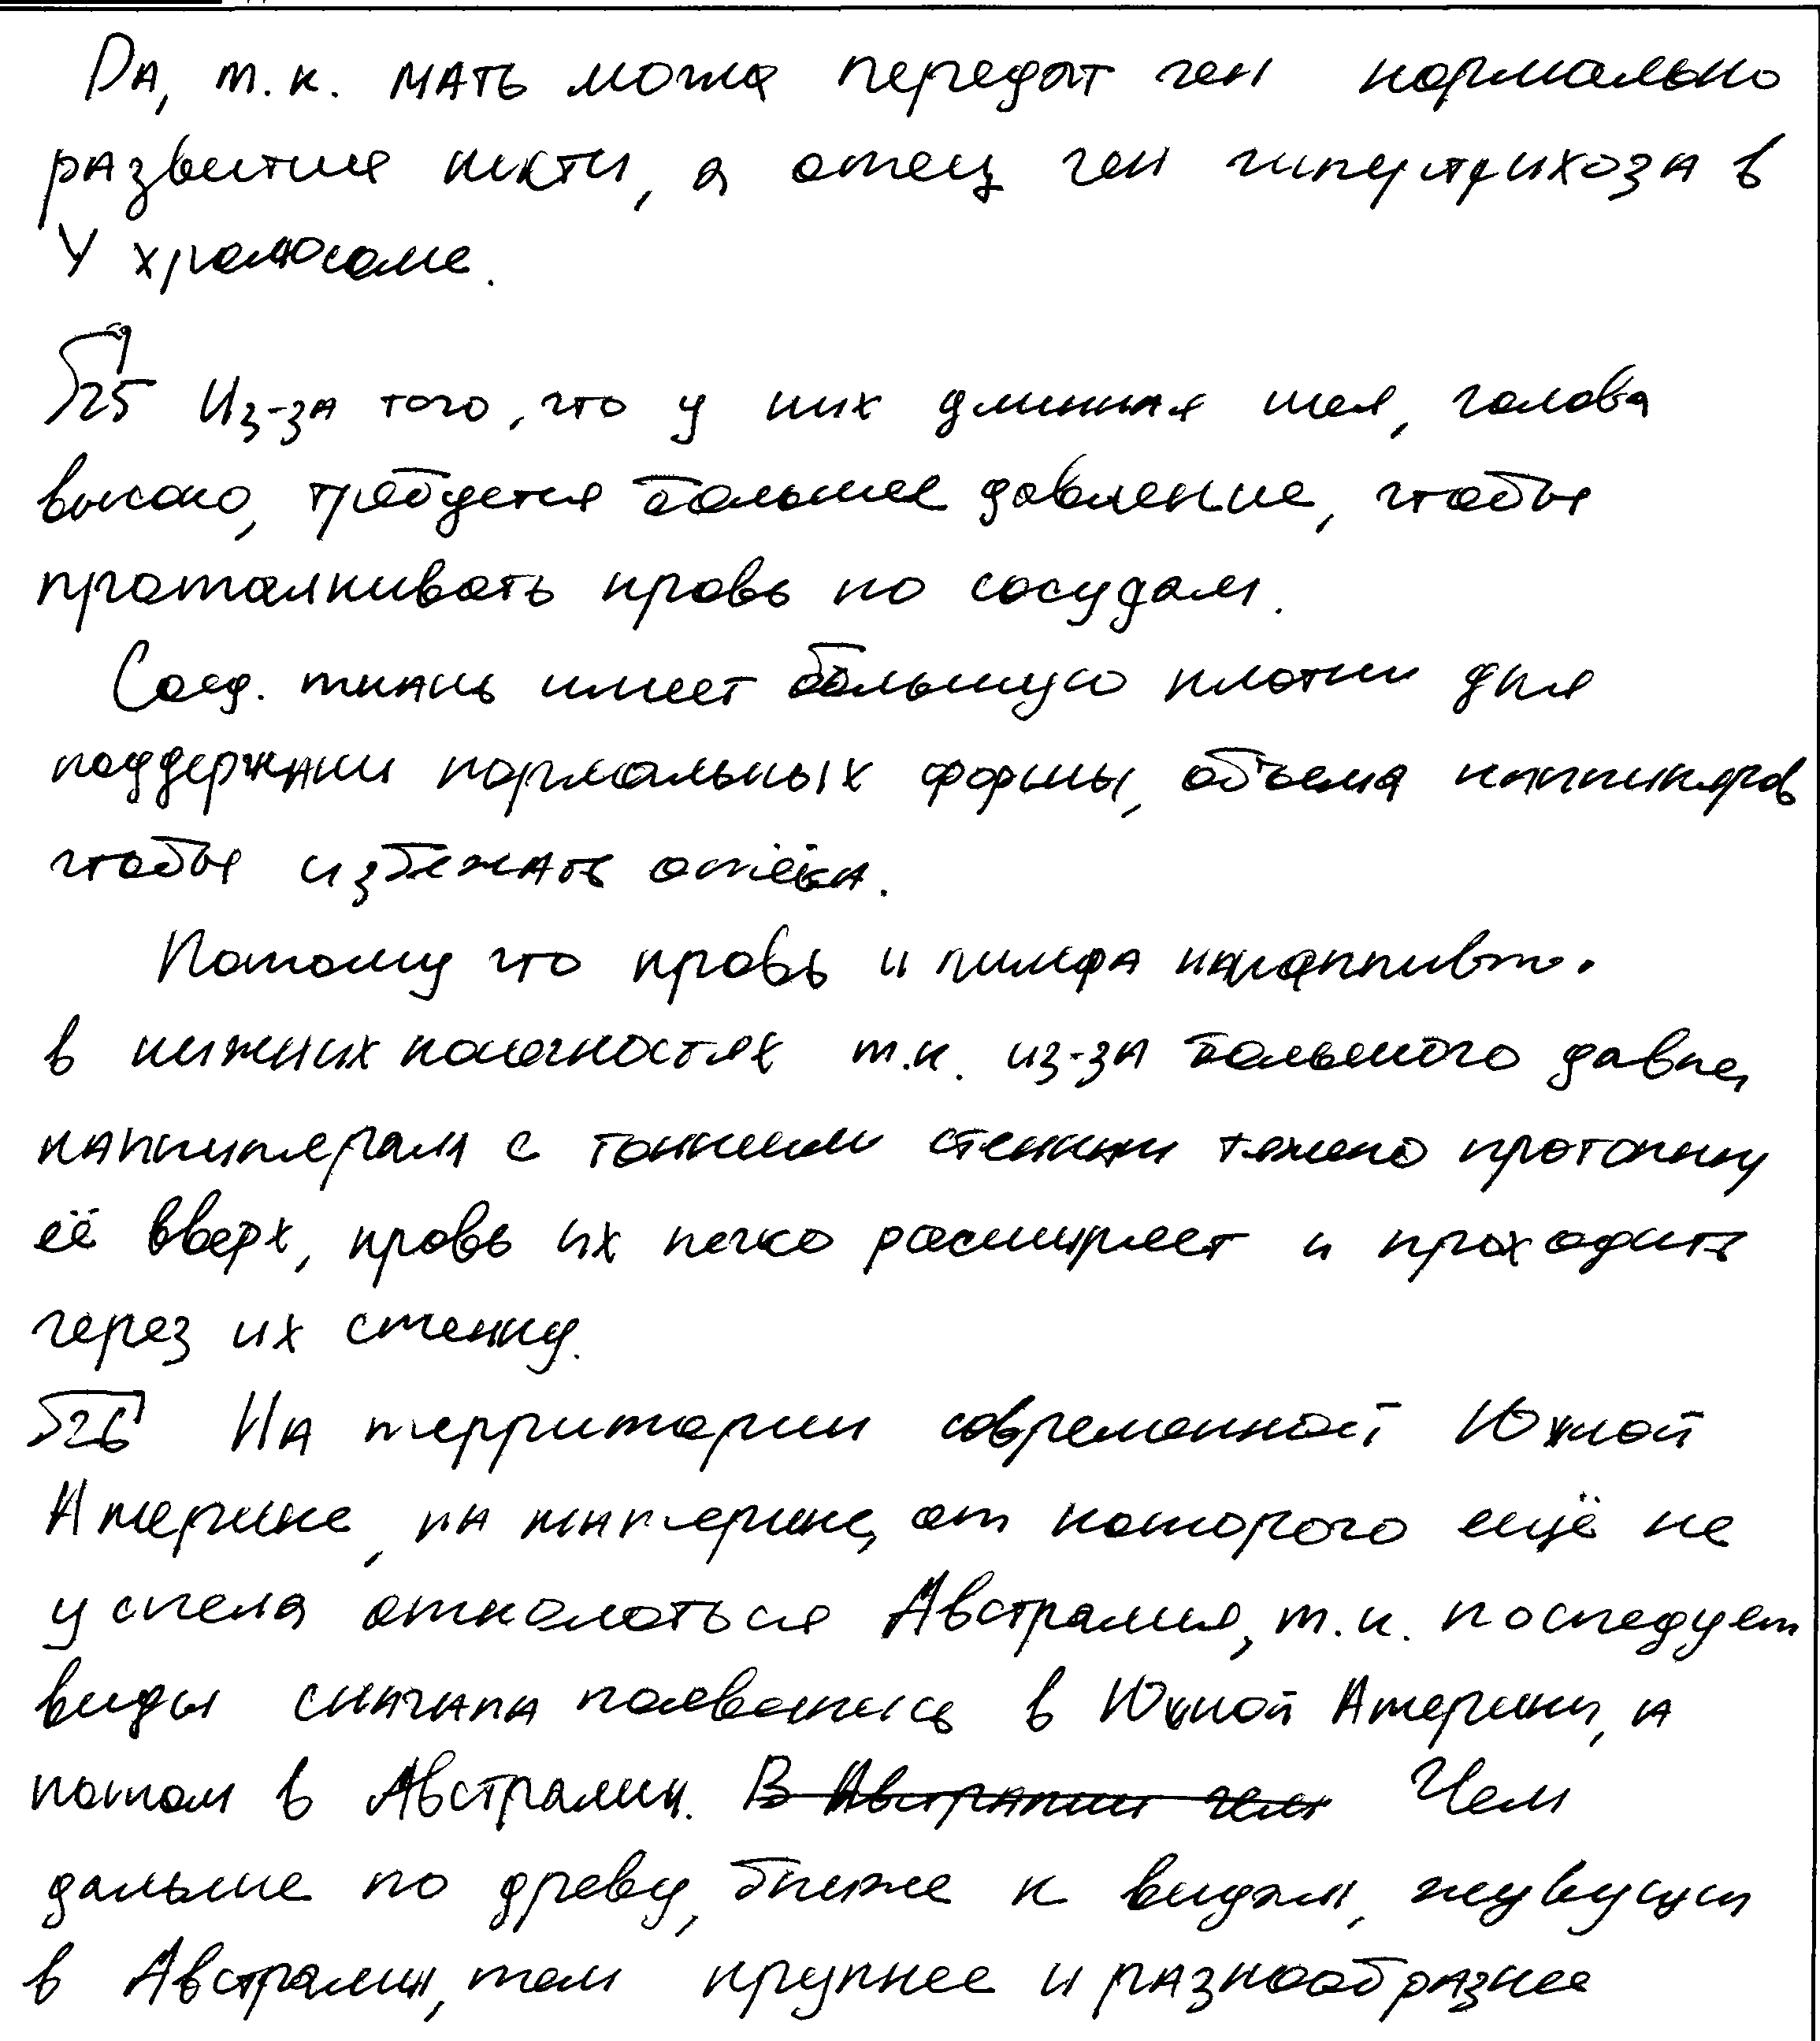 Да, т.к. мать може передат ген нормально
развития кисти, а отец ген гипертрихоза в
Y хромосоме.
25 Из-за того, что у них длинная шея, голова
высоко, требуется большее давление, чтобы
проталкивать кровь по сосудам.
Соед. ткань имеет большую плотн для
поддержани нормальных формы, объема каппиляров
чтобы избежать отёка.
Потому что кровь и лимфа
в нижних конечностях т.к. из-за большого давле,
каппилярам с тонкими стенкми тяжело протолкну
её вверх, кровь их легко расширяет и проходить
через их стенку.
26 На территории современной Южной
Америке, на материке, от которого ещё не
успела отколоться Австралия, т.к. последует
виды сначала появились в Южной Америки, а
потом в Австралии. В Австралии чем Чем
дальше по древу, ближе к видам, живущи
в Австралии, тем крупнее и разнообразнее